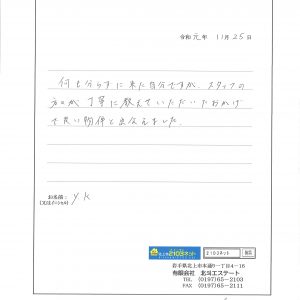 令和元年 11月25日
何も分らずに来た自分ですが、スタッフの
方が丁寧に教えていただいたおかげ
で良い物件と出会えました。
お名前：
(又はイニシャル) Y.K
北上市2103ネット
2103ネット 検索
岩手県北上市本通り9ー丁目4-16
有限会社 北斗エステート
TEL (0197)65-2103
FAX (0197)65-2111